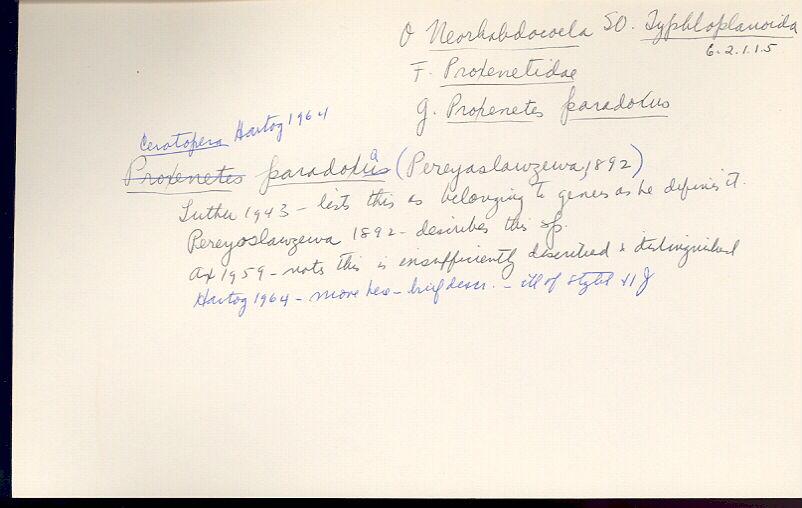 O Neorhabdocoela SO. Typhloplanoida
6.2.1.1.5
F. Proxenetidae
G. Proxenetes paradoxus
Ceratopera Hartog 1964
Proxenetes paradoxusa (Pereyaslawzewa, 1892)
Luther 1943 - lists this as belonging to genus as he defines it.
Pereyaslawzewa 1892 - describes this sp.
Ax 1959 - notes this is insufficiently described & distinguished
Hartog 1964 - more here - brief descr. - ill of stylet